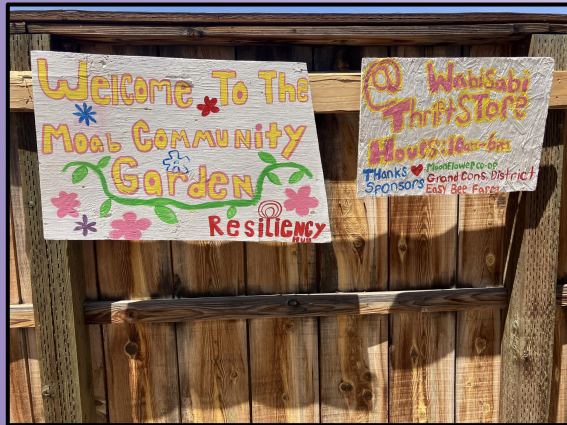 Welcome To The
Moab Community
Garden
Resiliency
HUB
WabiSabi
Thrift STore
Hours: 10am-6pm
THanks MoonFlower co-op
Sponsors Grand Cons. District
Easy Bee Farm